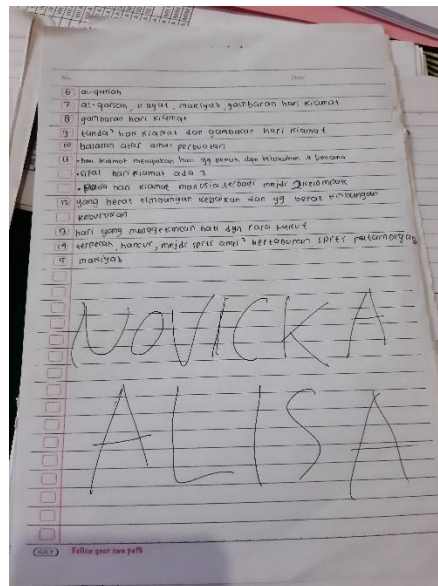 No. Date
6 al-qariah
7 al-qariah, 11 ayat, makiyah, gambaran hari kiamat
8 gambaran hari kiamat
9 tanda² hari kiamat dan gambaran hari kiamat
10 balasan atas amal perbuatan
11 •hari kiamat merupakan hari yg penuh dgn bencana
•sifat hari kiamat ada 2
•pada hari kiamat manusia terbagi mnjdi 2 kelompok
12 yang berat timbangan kebaikan dan yg berat timbangan
keburukan
13 hari yang menggetarkan hati dgn rasa takut
14 terpecah, hancur, mnjdi sprti anai² bertaburan sprti
15 makiyah
NOVICKA
ALISA
KIKY Follow your own path